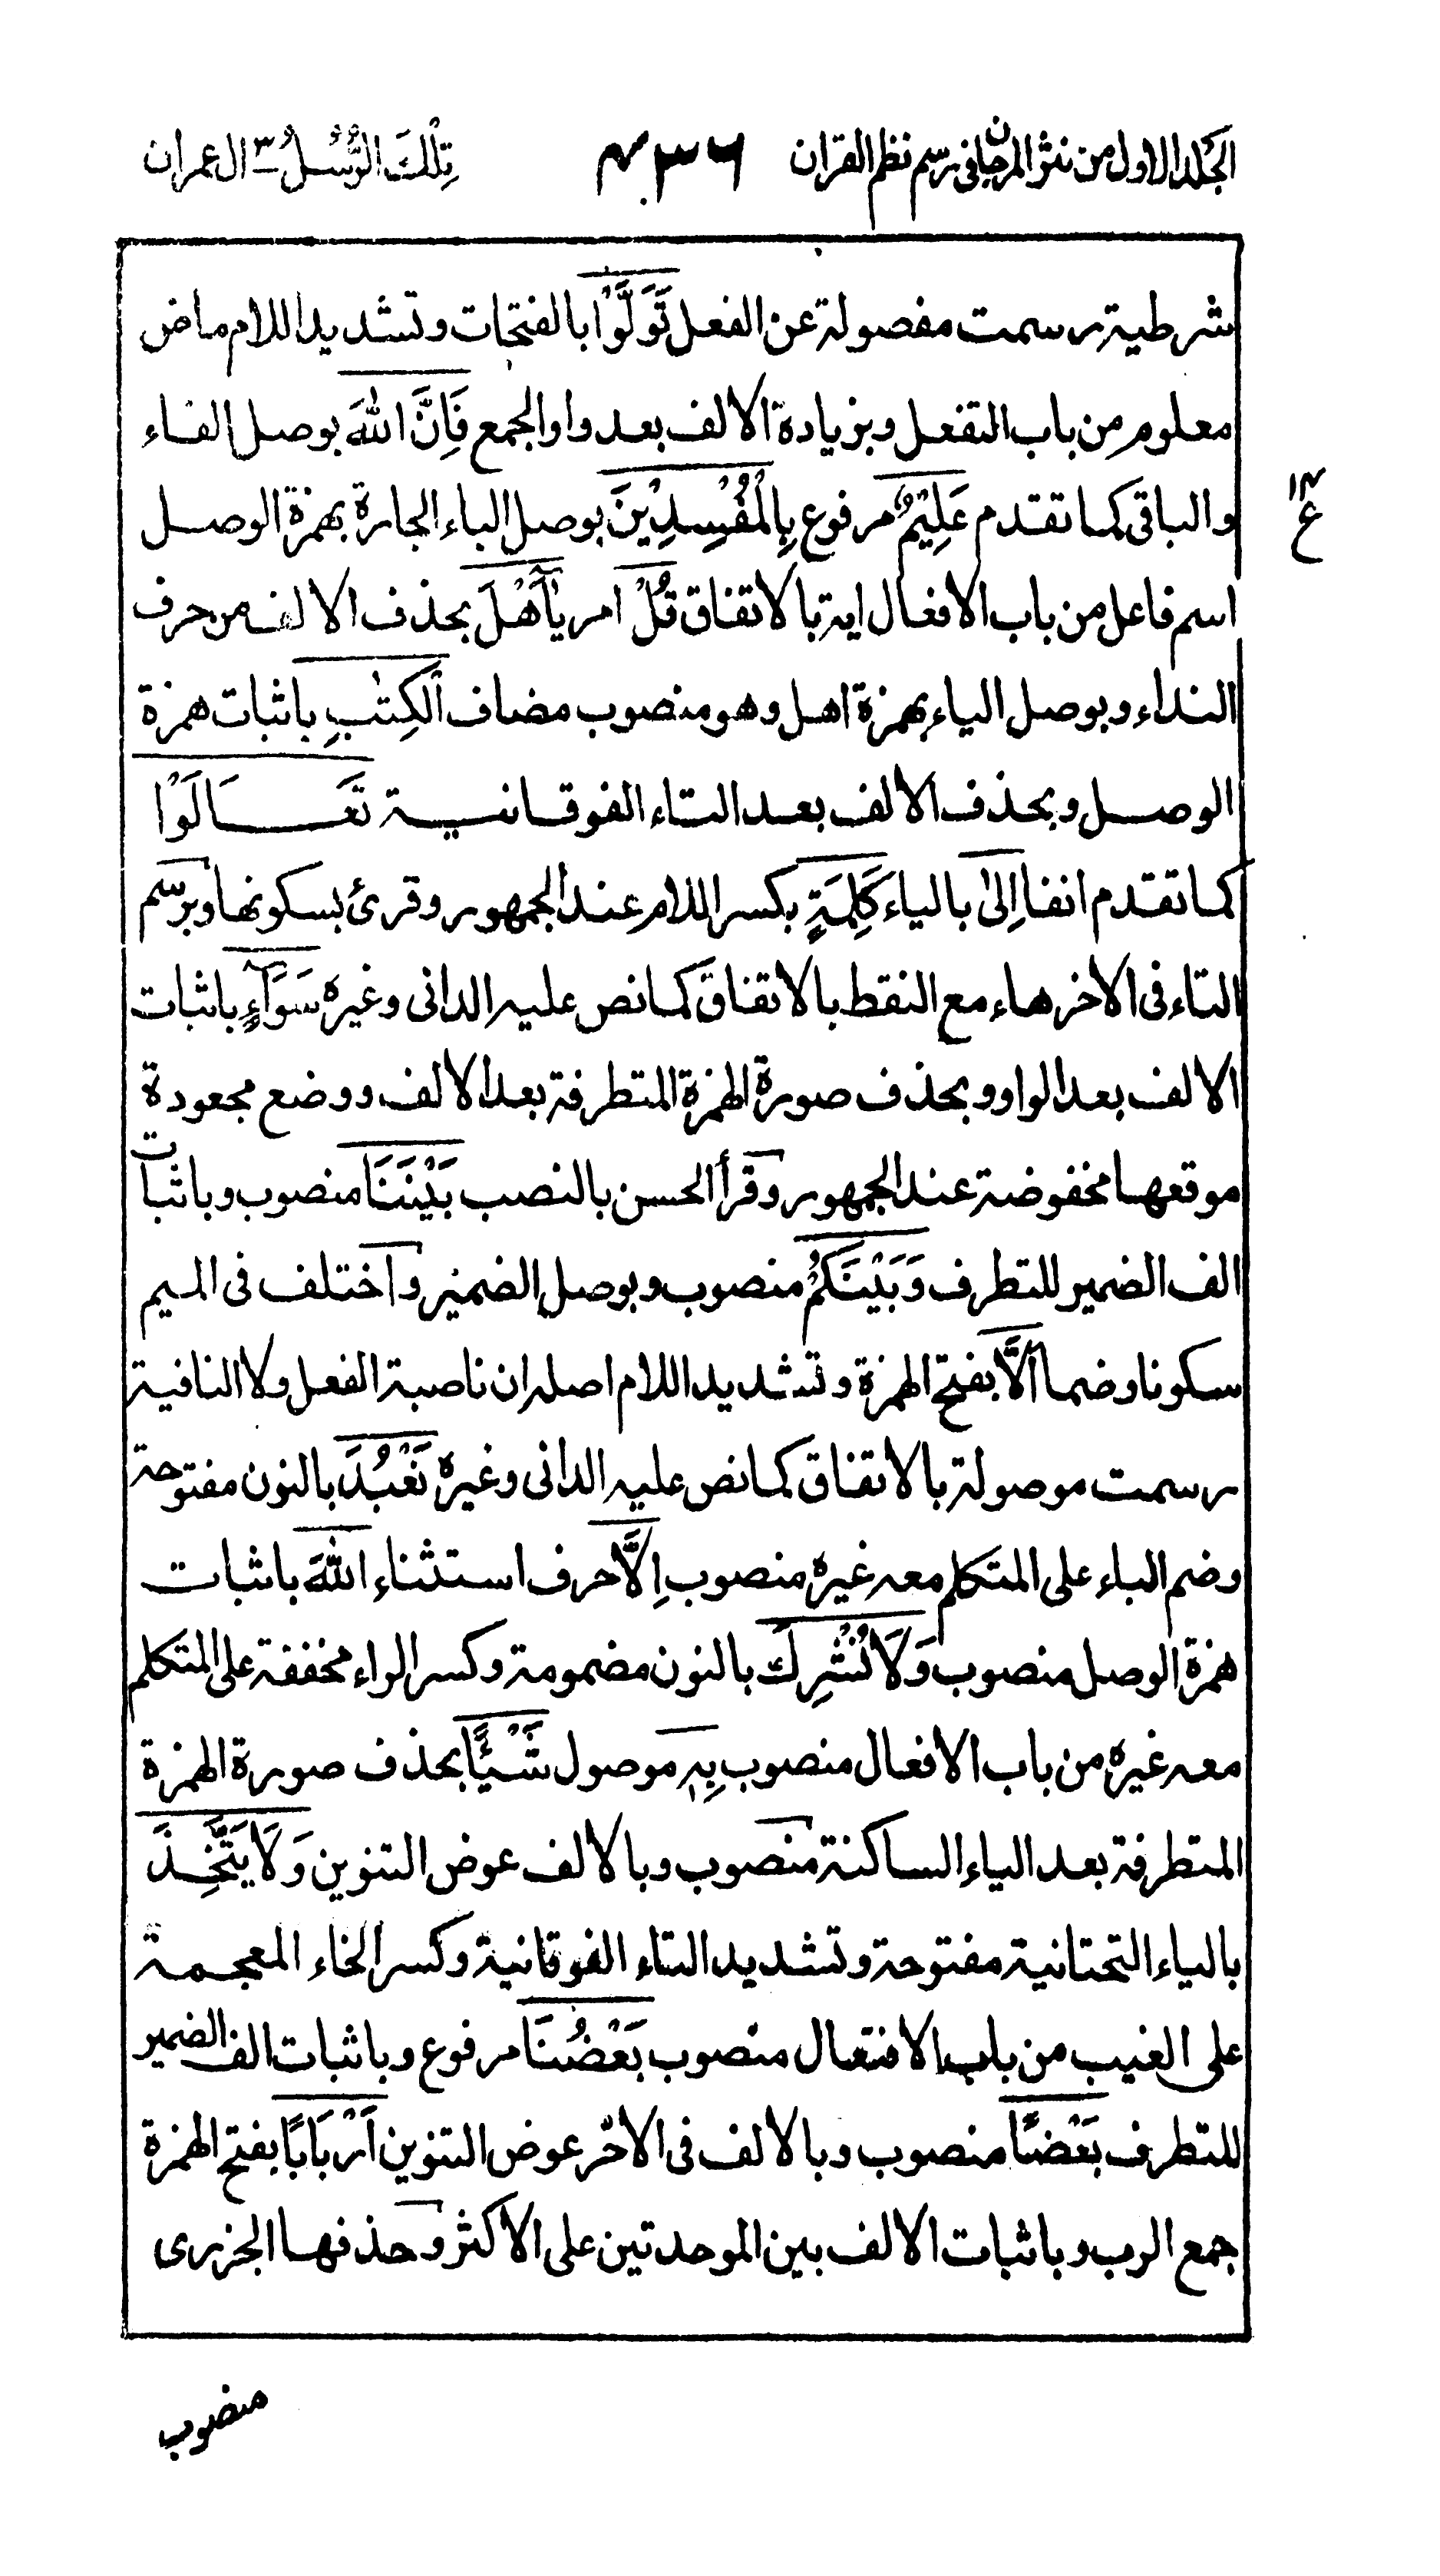 الجلد الاول من نثر المرجان فى رسم نظم القران ٤٣٦ تِلْكَ الرُّسُلُ ٣ ال عمران
شرطية رسمت مفصولة عن الفعل تَوَلَّوْا بالفتحات وتشديد اللام ماض
معلوم من باب التفعل وبزيادة الالف بعد واو الجمع فَاِنَّ اللّٰهَ بوصل الفاء
والباقى كما تقدم عَلِيْمٌۢ مرفوع بِالْمُفْسِدِيْنَ بوصل الباء الجارة بهمزة الوصل
١٤
ع
اسم فاعل من باب الافعال اية بالاتفاق قُلْ امر يٰٓاَهْلَ بحذف الالف من حرف
النداء وبوصل الياء بهمزة اهل وهو منصوب مضاف الْكِتٰبِ باثبات همزة
الوصل وبحذف الالف بعد التاء الفوقانية تَعَالَوْا
كما تقدم انفا اِلٰى بالياء كَلِمَةٍ بكسر اللام عند الجمهور وقرئ بسكونها وبرسم
التاء فى الاخر هاء مع النقط بالاتفاق كما نص عليه الدانى وغيره سَوَآءٍ باثبات
الالف بعد الواو وبحذف صورة الهمزة المتطرفة بعد الالف ووضع مجعودة
موقعها مخفوضة عند الجمهور وقرأ الحسن بالنصب بَيْنَنَا منصوب وباثبات
الف الضمير للتطرف وَبَيْنَكُمْ منصوب وبوصل الضمير واختلف فى الميم
سكونا وضما اَلَّا بفتح الهمزة وتشديد اللام اصله ان ناصبة الفعل ولا النافية
رسمت موصولة بالاتفاق كما نص عليه الدانى وغيره نَعْبُدَ بالنون مفتوحة
وضم الباء على المتكلم معه غيره منصوب اِلَّا حرف استثناء اللّٰهَ باثبات
همزة الوصل منصوب وَلَا نُشْرِكَ بالنون مضمومة وكسر الراء مخففة على المتكلم
معه غيره من باب الافعال منصوب بِهٖ موصول شَيْئًا بحذف صورة الهمزة
المتطرفة بعد الياء الساكنة منصوب وبالالف عوض التنوين وَلَا يَتَّخِذَ
بالياء التحتانية مفتوحة وتشديد التاء الفوقانية وكسر الخاء المعجمة
على الغيب من باب الافتعال منصوب بَعْضُنَا مرفوع وباثبات الف الضمير
للتطرف بَعْضًا منصوب وبالالف فى الاخر عوض التنوين اَرْبَابًا بفتح الهمزة
جمع الرب وباثبات الالف بين الموحدتين على الاكثر وحذفها الجزرى
منصوب